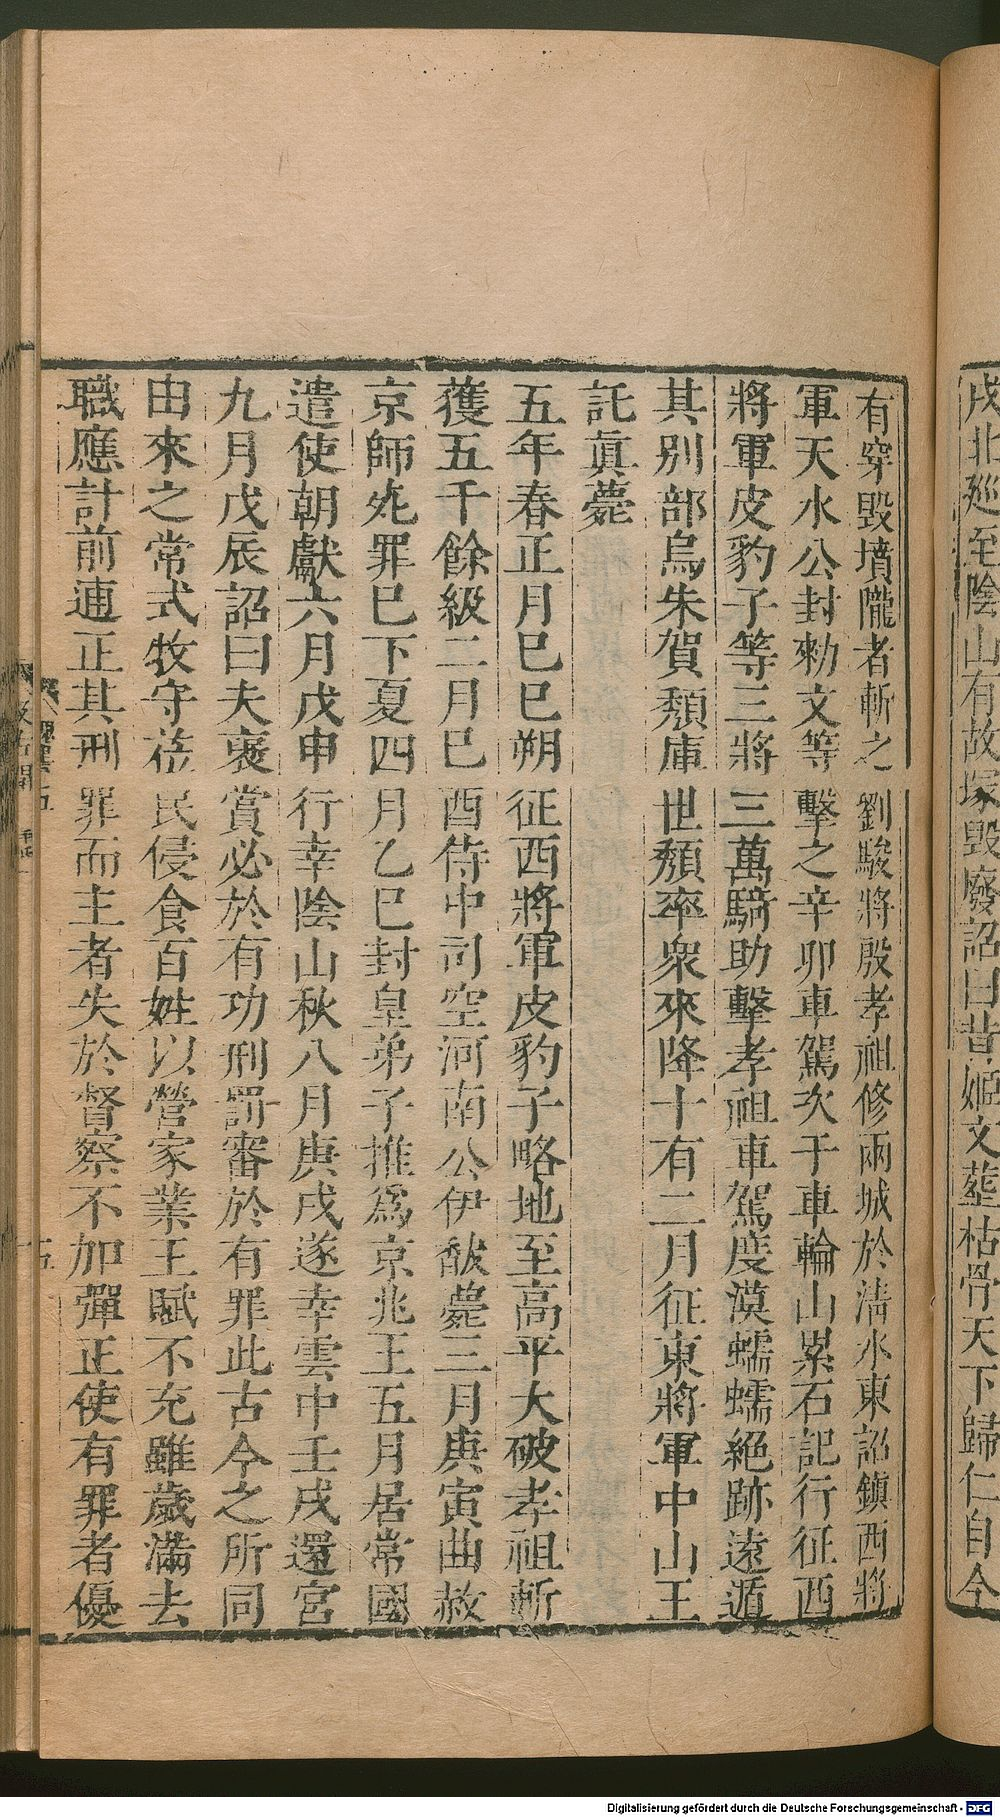 戍北廵至陰山有故塚毀廢詔曰昔姬文葬枯骨天下歸仁自今
有穿毀墳隴者斬之劉駿將殷孝祖修兩城於清水東詔鎮西將
軍天水公封勑文等擊之辛卯車駕次于車輪山累石記行征西
將軍皮豹子等三將三萬騎助擊孝祖車駕度漠蠕蠕絕跡遠遁
其別部烏朱賀頹庫世頹率衆來降十有二月征東將軍中山王
託眞薨
五年春正月巳巳朔征西將軍皮豹子略地至高平大破孝祖斬
獲五千餘級二月巳酉侍中司空河南公伊馛薨三月庚寅曲赦
京師死罪巳下夏四月乙巳封皇弟子推爲京兆王五月居常國
遣使朝獻六月戊申行幸陰山秋八月庚戌遂幸雲中壬戌還宮
九月戊辰詔曰夫褒賞必於有功刑罰審於有罪此古今之所同
由來之常式牧守莅民侵食百姓以營家業王賦不充雖歲滿去
職應計前逋正其刑罪而主者失於督察不加彈正使有罪者優
Digitalisierung gefördert durch die Deutsche Forschungsgemeinschaft - DFG